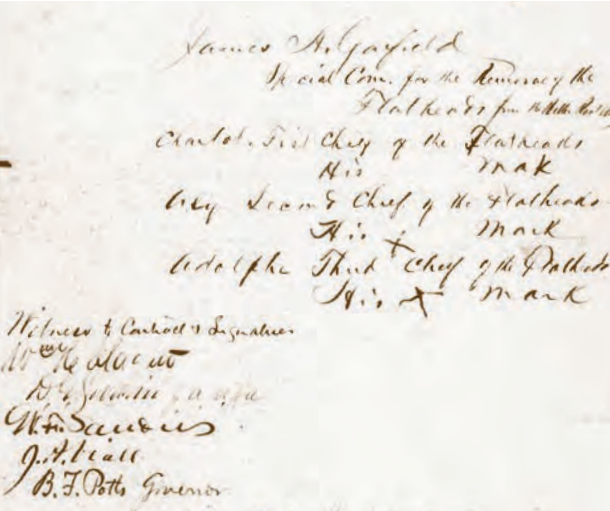 James A. Garfield
Special Com. for the Removal of the
Flatheads from the Bitter Root
Charlot. First Chief of the Flatheads
His Mark
Arly Second Chief of the Flatheads
His x Mark
Adolphe Third Chief of the Flatheads
His x Mark
Witness to Contract & Signatures
Wm H
D
W.F. Sanders
J.A. Viall
B.F. Potts Governor